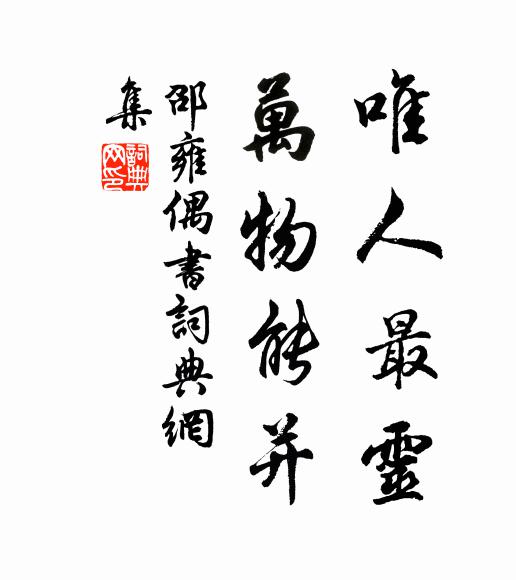 唯人最靈
萬物能并
邵雍偶書詞典網
集
詞典網印